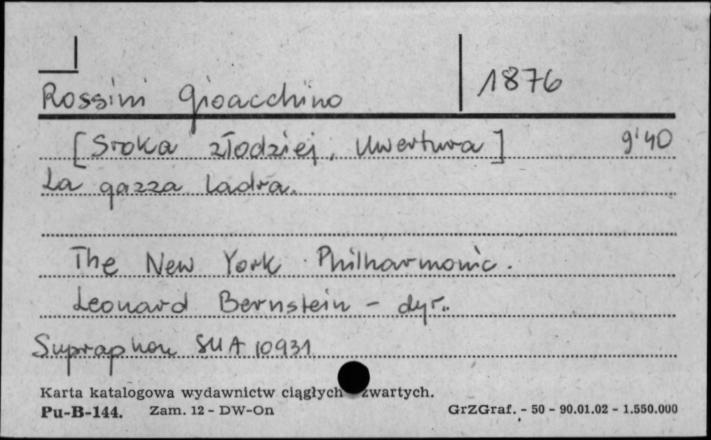 Rossini Gioacchino 1876
[Sroka złodziej, Uwertura] 9'40
La gazza Ladra.
The New York Philharmonic.
Leonard Bernstein - dyr.
Supraphon SUA 10931
Karta katalogowa wydawnictw ciągłych zwartych.
Pu-B-144. Zam. 12 - DW-On GrZGraf. - 50 - 90.01.02 - 1.550.000